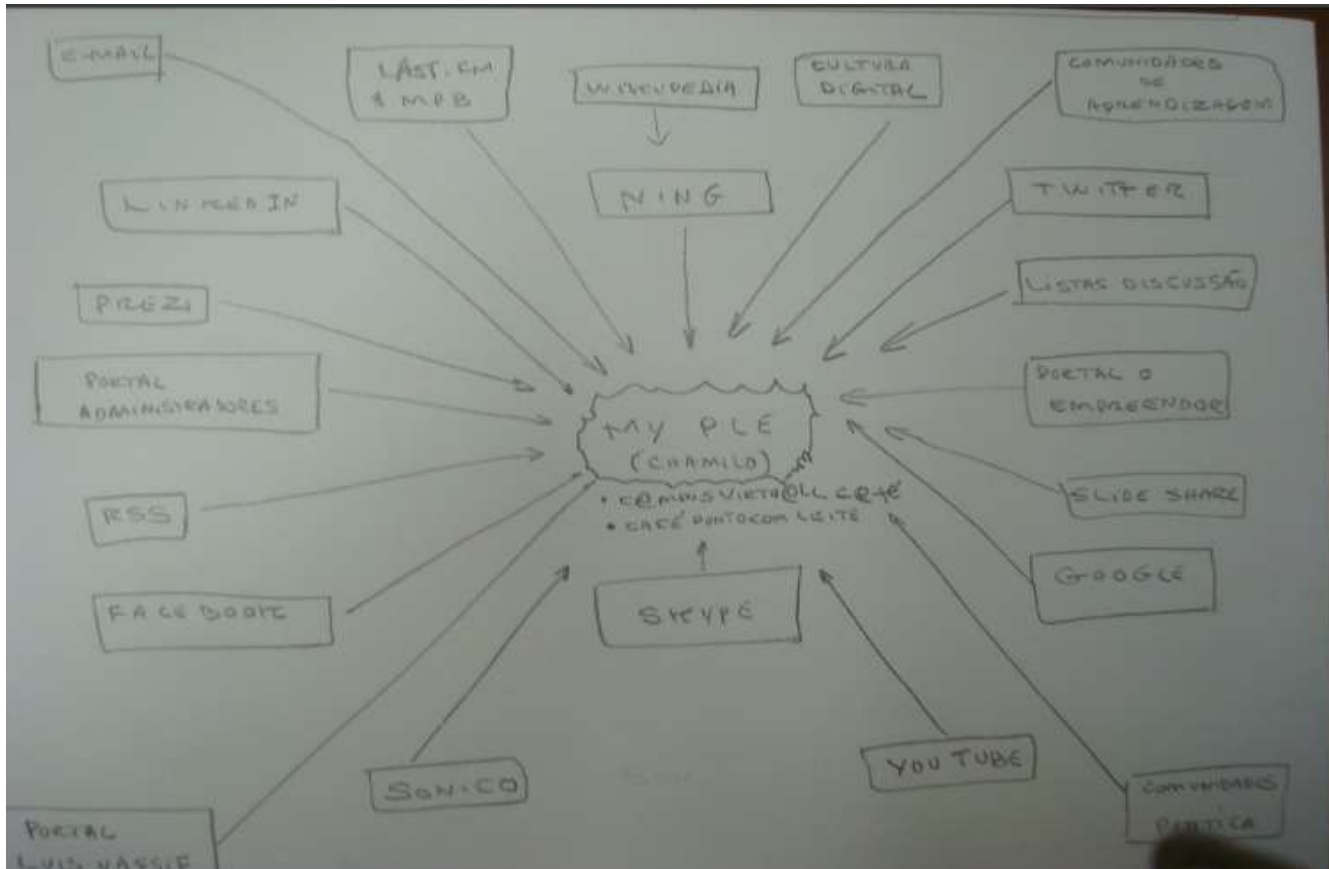 E-MAIL
LAST.FM
& MPB
WIKIPEDIA
CULTURA
DIGITAL
COMUNIDADES
DE
APRENDIZAGEM
LINKEDIN
NING
TWITTER
PREZI
LISTAS DISCUSSÃO
PORTAL
ADMINISTRADORES
MY PLE
(CHAMILO)
• C@MPUS VIRTU@LL C@fé
• CAFÉ PONTOCOM LEITE
PORTAL O
EMPREENDOR
RSS
SLIDE SHARE
FACEBOOK
SKYPE
GOOGLE
SONICO
YOU TUBE
COMUNIDADES
PORTAL
LUIS NASSIF